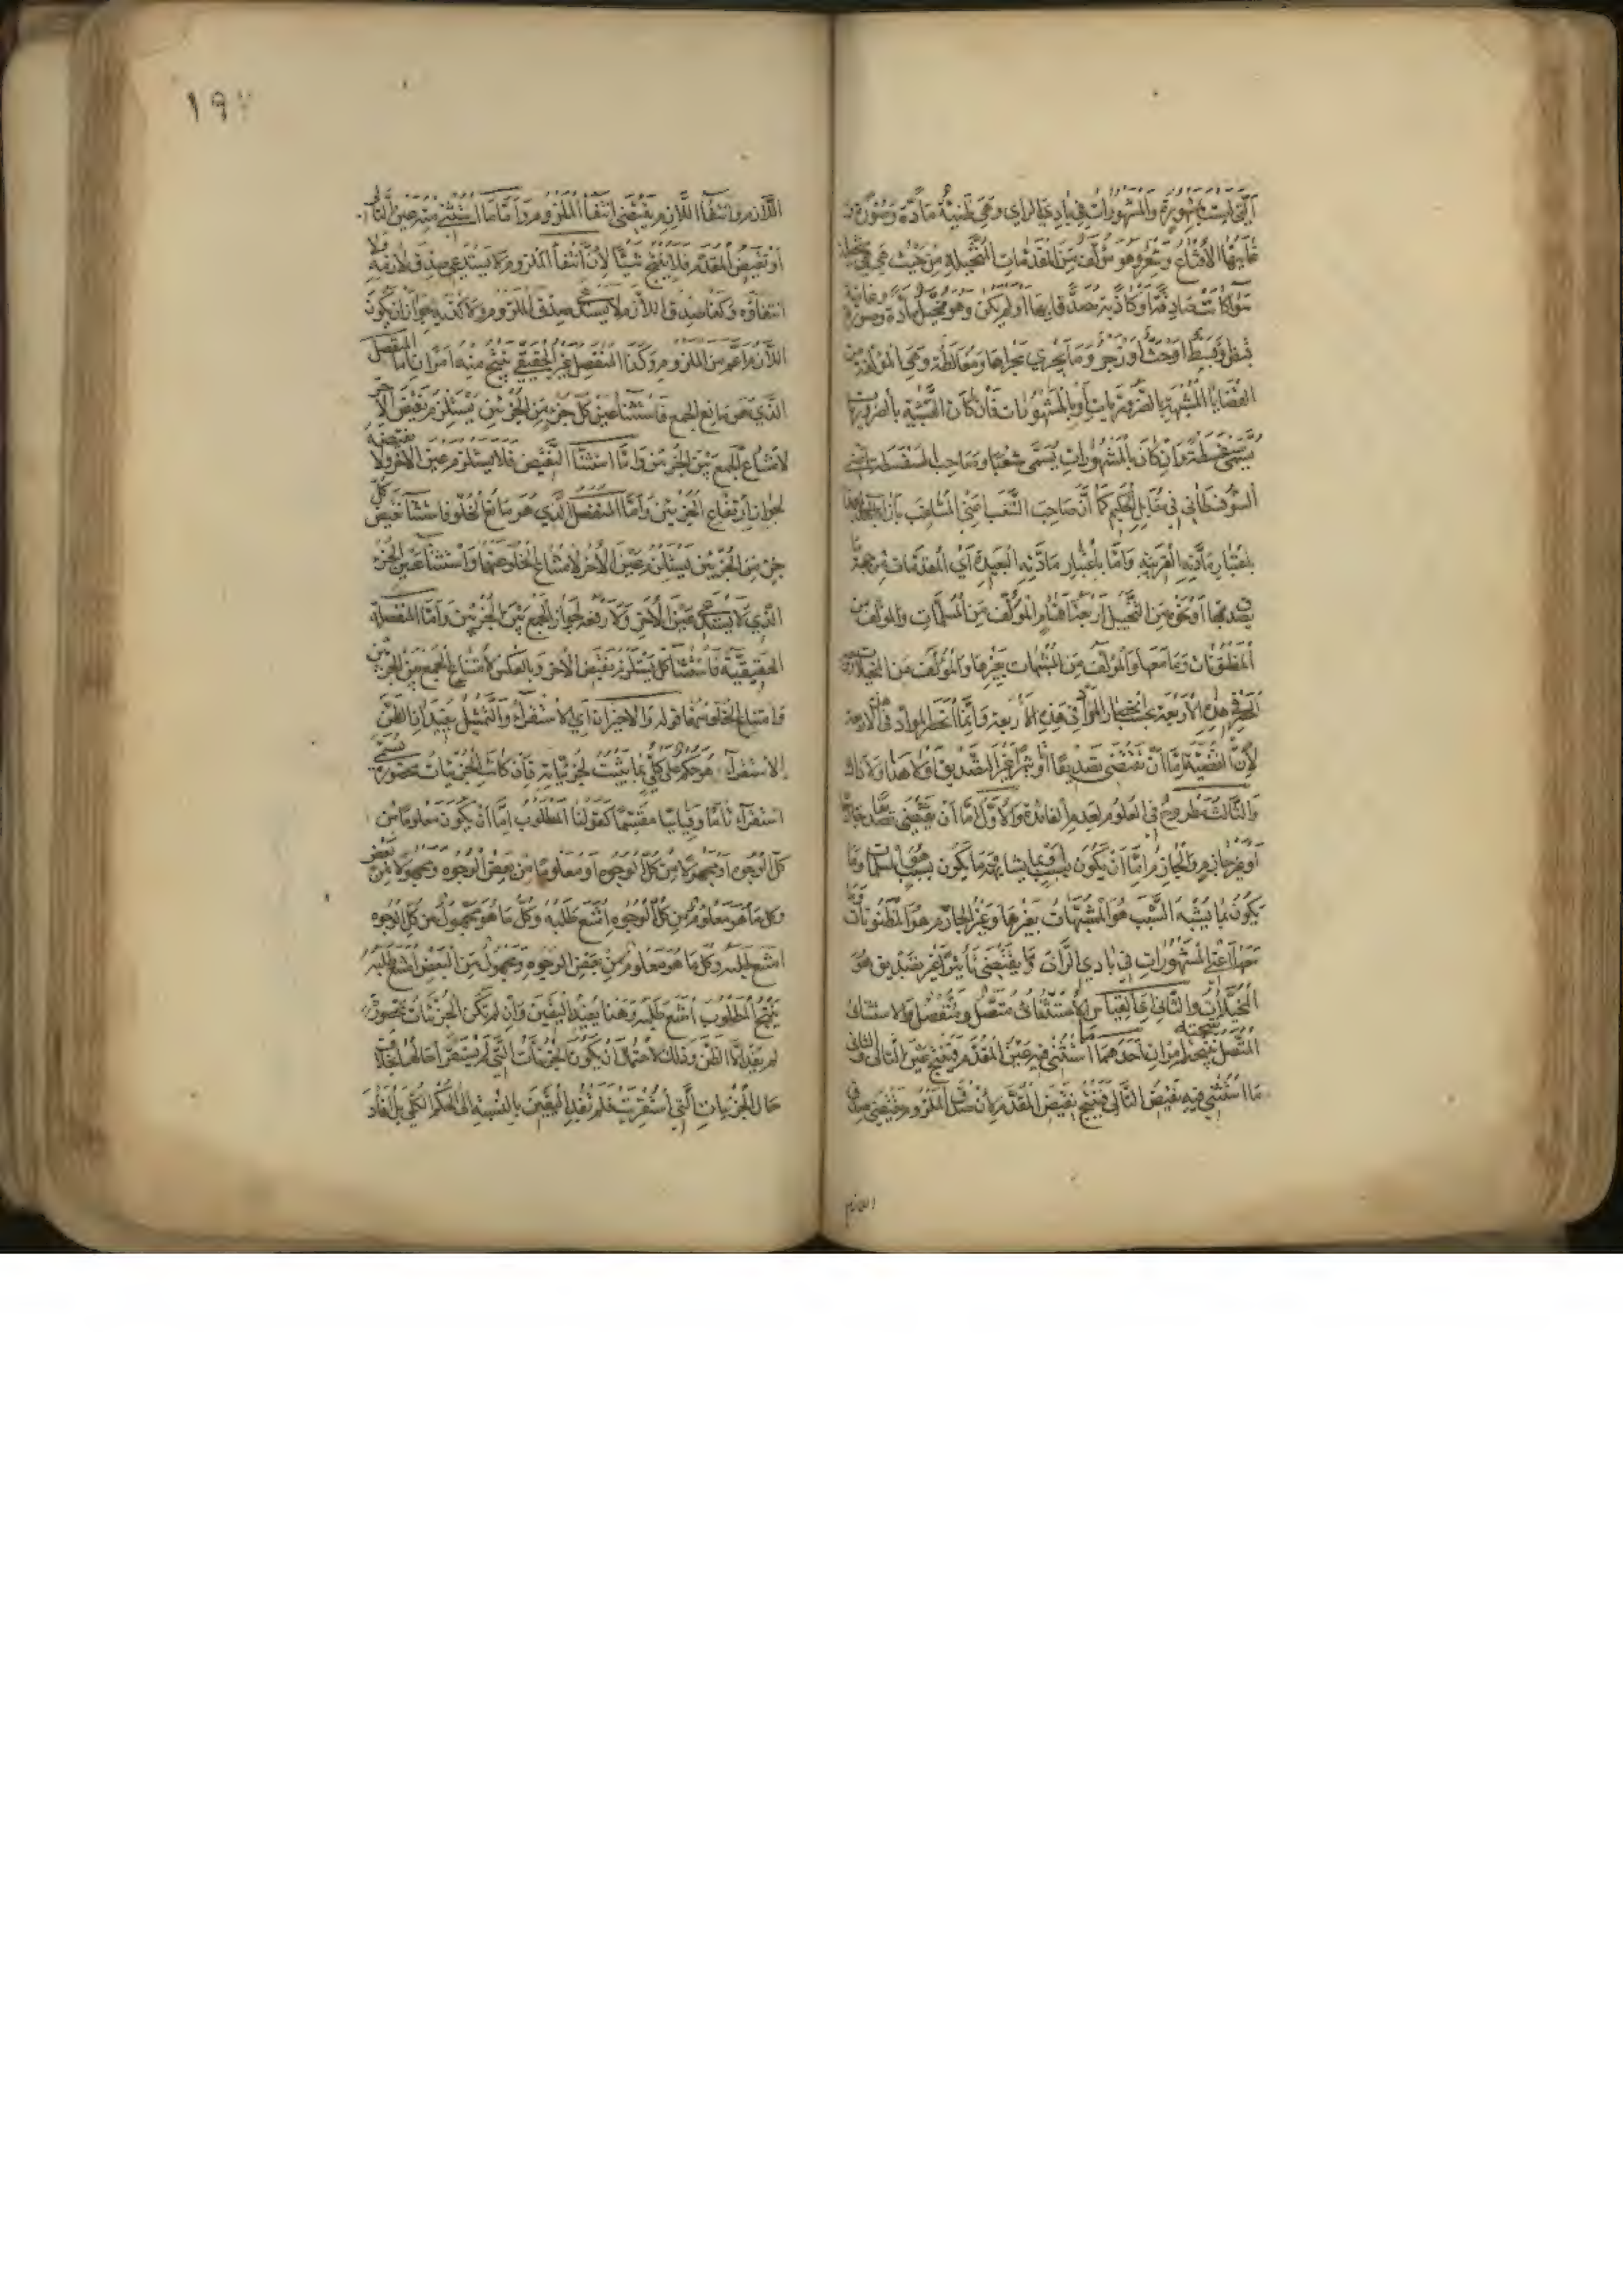 التي ليست بمشهورة والمشهورات في بادي الراي وهي ظنية مادة وصورة
غايتها الاقناع وشعر وهو مؤلف من المقدمات المخيلة من حيث هي مخيلة
سواء كانت صادقة او كاذبة مصدقا بها او لم يكن وهو مخيل مادة وصورة وغايته
قبض وبسط او حث او زجر وما يجري مجراها ومغالطة وهي المؤلفة من
القضايا المشبهة بالضروريات او بالمشهورات فان كان التشبيه بالضروريات
يسمى سفسطة وان كان بالمشهورات يسمى شغبا وصاحب السفسطة يسمى
السوفسطائي في مقابل الحكيم كما ان صاحب الشغب اعني المشاغب بازاء
باعتبار مادته القريبة واما باعتبار مادته البعيدة اي المقدمات من جهة ما
يصدق بها او نحوه من التخييل اربعة اقسام المؤلف من المسلمات والمؤلف من
المظنونات وما معها والمؤلف من المشبهات بغيرها والمؤلف من المخيلات
الحصر في هذه الاربعة بحسب انحصار المواد في هذه الاربعة وانما انحصر المواد في هذه الاربعة
لان القضية اما ان تقتضي تصديقا او تاثيرا غير التصديق او لا هذا ولا ذاك
والثالث مطروح في العلوم لعدم الفائدة والاول اما ان يقتضي تصديقا جازما
او غير جازم والجازم اما ان يكون لسبب او لما يشابهه فما يكون بسبب هو المسلمات وما
يكون لما يشبه السبب هو المشبهات بغيرها وغير الجازم هو المظنونات وما
معها اعني المشهورات في بادي الراي وما يقتضي تاثيرا غير تصديق هو
المخيلات والثاني القياس الاستثنائي متصل ومنفصل والاستثنائي
المتصل نتيجته امران احدهما ما استثني فيه عين المقدم فينتج عين التالي والثاني
ما استثني فيه نقيض التالي فينتج نقيض المقدم لان صدق الملزوم يقتضي صدق
اللازم
١٩
اللازم وانتفاء اللازم يقتضي انتفاء الملزوم واما ما استثني منه عين التالي
او نقيض المقدم فلا ينتج شيئا لان انتفاء الملزوم لا يستدعي صدق لازمه ولا
انتفاؤه وكذا صدق اللازم لا يستدعي صدق الملزوم ولا كذبه لجواز ان يكون
اللازم اعم من الملزوم وكذا المنفصل غير الحقيقي ينتج منه امران اما المنفصل
الذي هو مانع الجمع فاستثناء عين كل جزء من الجزئين يستلزم نقيض الاخر
لامتناع الجمع بين الجزئين واما استثناء النقيض فلا يستلزم عين الاخر ولا نقيضه
لجواز ارتفاع الجزئين واما المنفصل الذي هو مانع الخلو فاستثناء نقيض كل
جزء من الجزئين يستلزم عين الاخر لامتناع الخلو عنهما واستثناء عين الجزء
الذي لا يستدعي عين الاخر ولا رفعه لجواز الجمع بين الجزئين واما المنفصلة
الحقيقية فاستثناء كل يستلزم نقيض الاخر وبالعكس لامتناع الجمع بين الجزئين
وامتناع الخلو عنهما قوله والاخيران اي الاستقراء والتمثيل يفيدان الظن
الاستقراء هو حكم على كلي بما يثبت لجزئياته فان كانت الجزئيات محصورة يسمى
استقراء تاما وقياسا مقسما كقولنا المطلوب اما ان يكون معلوما من
كل الوجوه او مجهولا من كل الوجوه او معلوما من بعض الوجوه ومجهولا من بعض
وكل ما هو معلوم من كل الوجوه امتنع طلبه وكل ما هو مجهول من كل الوجوه
امتنع طلبه وكل ما هو معلوم من بعض الوجوه ومجهول من البعض امتنع طلبه
ينتج المطلوب امتنع طلبه وهذا يفيد اليقين وان لم تكن الجزئيات محصورة
لم يفد الا الظن وذلك لاحتمال ان يكون الجزئيات التي لم يستقر احالها بخلاف
حال الجزئيات التي استقريت فلم تفد اليقين بالنسبة الى الحكم الكلي بل افاد